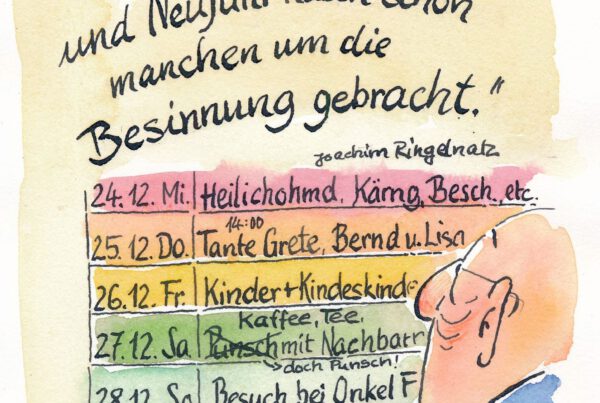 und Neujahr haben schon
manchen um die
Besinnung gebracht."
Joachim Ringelnatz
24.12. Mi. Heilichohmd. Kärng, Besch., etc.
14:00
25.12. Do. Tante Grete, Bernd u. Lisa
26.12. Fr. Kinder + Kindeskinde
Kaffee, Tee.
27.12. Sa Punsch mit Nachbarn
doch Punsch!
28.12. So Besuch bei Onkel F